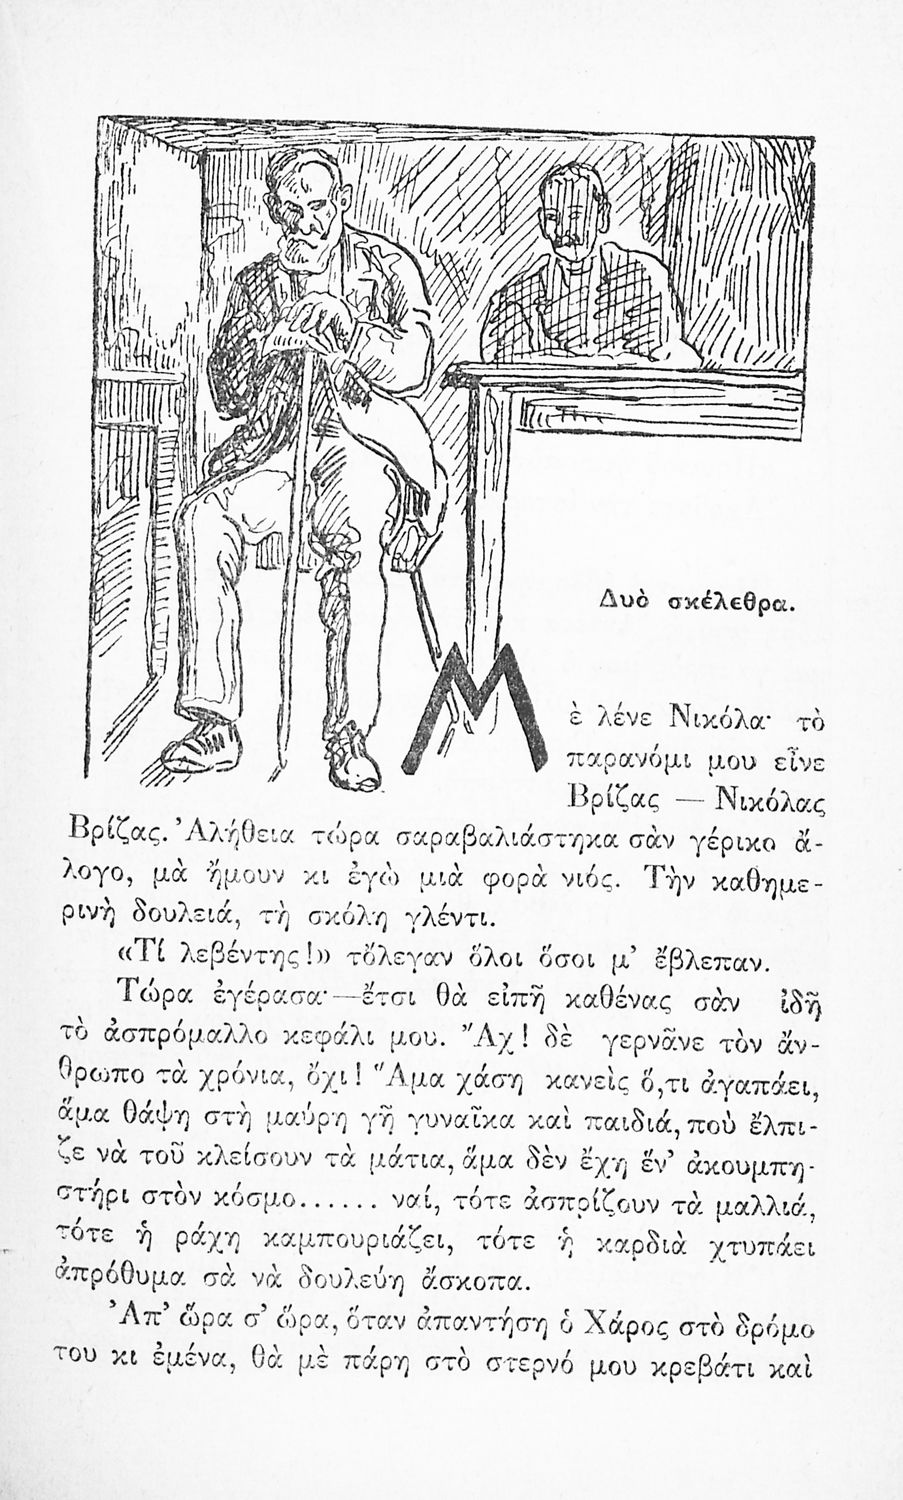 Δυὸ σκέλεθρα.
Μὲ λένε Νικόλα· τὸ
παρανόμι μου εἶνε
Βρίζας — Νικόλας
Βρίζας. Ἀλήθεια τώρα σαραβαλιάστηκα σὰν γέρικο ἄ-
λογο, μὰ ἤμουν κι ἐγὼ μιὰ φορὰ νιός. Τὴν καθημε-
ρινὴ δουλειά, τὴ σκόλη γλέντι.
«Τί λεβέντης!» τὄλεγαν ὅλοι ὅσοι μ’ ἔβλεπαν.
Τώρα ἐγέρασα·—ἔτσι θὰ εἰπῆ καθένας σὰν ἰδῆ
τὸ ἀσπρόμαλλο κεφάλι μου. Ἄχ! δὲ γερνᾶνε τὸν ἄν-
θρωπο τὰ χρόνια, ὄχι! Ἅμα χάση κανεὶς ὅ,τι ἀγαπάει,
ἅμα θάψη στὴ μαύρη γῆ γυναῖκα καὶ παιδιά, ποὺ ἔλπι-
ζε νὰ τοῦ κλείσουν τὰ μάτια, ἅμα δὲν ἔχη ἕν’ ἀκουμπη-
στήρι στὸν κόσμο...... ναί, τότε ἀσπρίζουν τὰ μαλλιά,
τότε ἡ ράχη καμπουριάζει, τότε ἡ καρδιὰ χτυπάει
ἀπρόθυμα σὰ νὰ δουλεύη ἄσκοπα.
Ἀπ’ ὥρα σ’ ὥρα, ὅταν ἀπαντήση ὁ Χάρος στὸ δρόμο
του κι ἐμένα, θὰ μὲ πάρη στὸ στερνό μου κρεβάτι καὶ